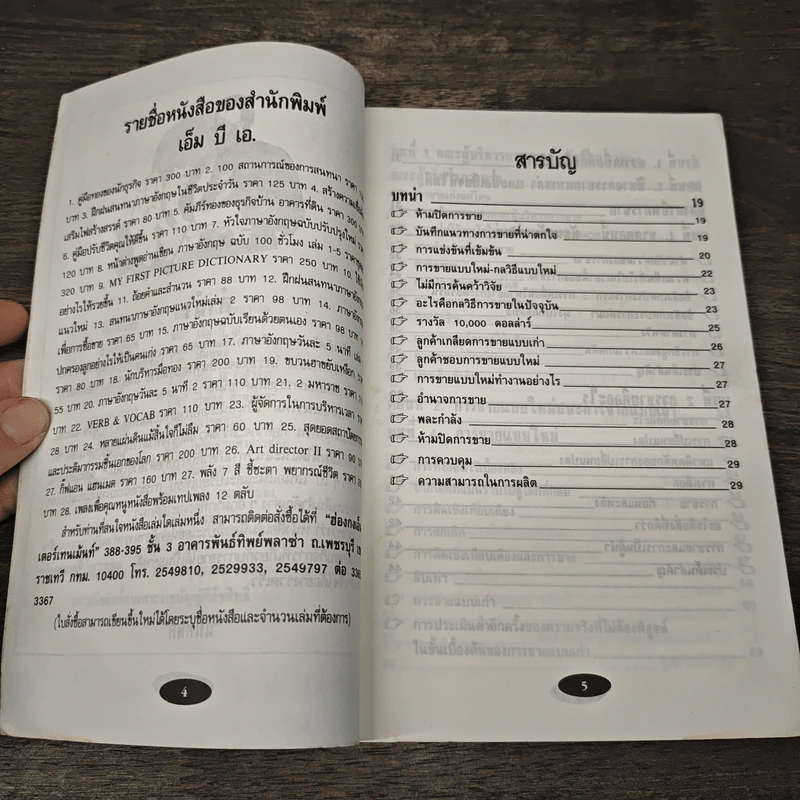 รายชื่อหนังสือของสำนักพิมพ์
เอ็ม บี เอ.
1. คู่มือทองของนักธุรกิจ ราคา 300 บาท 2. 100 สถานการณ์ของการสนทนา ราคา
บาท 3. ฝึกฝนสนทนาภาษาอังกฤษในชีวิตประจำวัน ราคา 125 บาท 4. สร้างความ
เสริมไฟสร้างสรรค์ ราคา 80 บาท 5. คัมภีร์ทองของธุรกิจบ้าน อาคารที่ดิน ราคา 300
6. คู่มือปรับชีวิตคุณให้ดีขึ้น ราคา 110 บาท 7. หัวใจภาษาอังกฤษฉบับปรับปรุงใหม่
120 บาท 8. หน้าต่างพูดอ่านเขียน ภาษาอังกฤษ ฉบับ 100 ชั่วโมง เล่ม 1-5
320 บาท 9. MY FIRST PICTURE DICTIONARY ราคา 250 บาท 10.
อย่างไรให้รวยขึ้น 11. ถ้อยคำและสำนวน ราคา 88 บาท 12. ฝึกฝนสนทนาภาษา
แนวใหม่ 13. สนทนาภาษาอังกฤษแนวใหม่เล่ม 2 ราคา 98 บาท 14.
เพื่อการซื้อขาย ราคา 65 บาท 15. ภาษาอังกฤษฉบับเรียนด้วยตนเอง ราคา 98
ปกครองลูกอย่างไรให้เป็นคนเก่ง ราคา 65 บาท 17. ภาษาอังกฤษวันละ 5 นาที
ราคา 80 บาท 18. นักบริหารมือทอง ราคา 200 บาท 19. ขบวนฮาขยับเหงือก
55 บาท 20. ภาษาอังกฤษวันละ 5 นาที 2 ราคา 110 บาท 21. 2 มหาราช
บาท 22. VERB & VOCAB ราคา 110 บาท 23. ผู้จัดการในการบริหารเวลา
28 บาท 24. หลายแผ่นดินแม้สิ้นใจก็ไม่ลืม ราคา 60 บาท 25.
และประติมากรรมชิ้นเอกของโลก ราคา 200 บาท 26. Art director II ราคา 90
27. กิ๊ฟแอน แฮนเมด ราคา 160 บาท 27. พลัง 7 สี ชี้ชะตา พยากรณ์ชีวิต ราคา
บาท 28. เพลงเพื่อคุณหนูหนังสือพร้อมเทปเพลง 12 ตลับ
สำหรับท่านที่สนใจหนังสือเล่มใดเล่มหนึ่ง สามารถติดต่อสั่งซื้อได้ที่
เตอร์เทนเม้นท์" 388-395 ชั้น 3 อาคารพันธ์ทิพย์พลาซ่า ถ.เพชรบุรี
ราชเทวี กทม. 10400 โทร. 2549810, 2529933, 2549797 ต่อ
3367
(ใบสั่งซื้อสามารถเขียนขึ้นใหม่ได้โดยระบุชื่อหนังสือและจำนวนเล่มที่ต้องการ)
4
สารบัญ
บทนำ 19
ห้ามปิดการขาย 19
บันทึกแนวทางการขายที่น่าตกใจ 19
การแข่งขันที่เข้มข้น 20
การขายแบบใหม่-กลวิธีแบบใหม่ 22
ไม่มีการค้นคว้าวิจัย 23
อะไรคือกลวิธีการขายในปัจจุบัน 23
รางวัล 10,000 ดอลล่าร์ 25
ลูกค้าเกลียดการขายแบบเก่า 26
ลูกค้าชอบการขายแบบใหม่ 27
การขายแบบใหม่ทำงานอย่างไร 27
อำนาจการขาย 27
พละกำลัง 28
ห้ามปิดการขาย 28
การควบคุม 29
ความสามารถในการผลิต 29
5